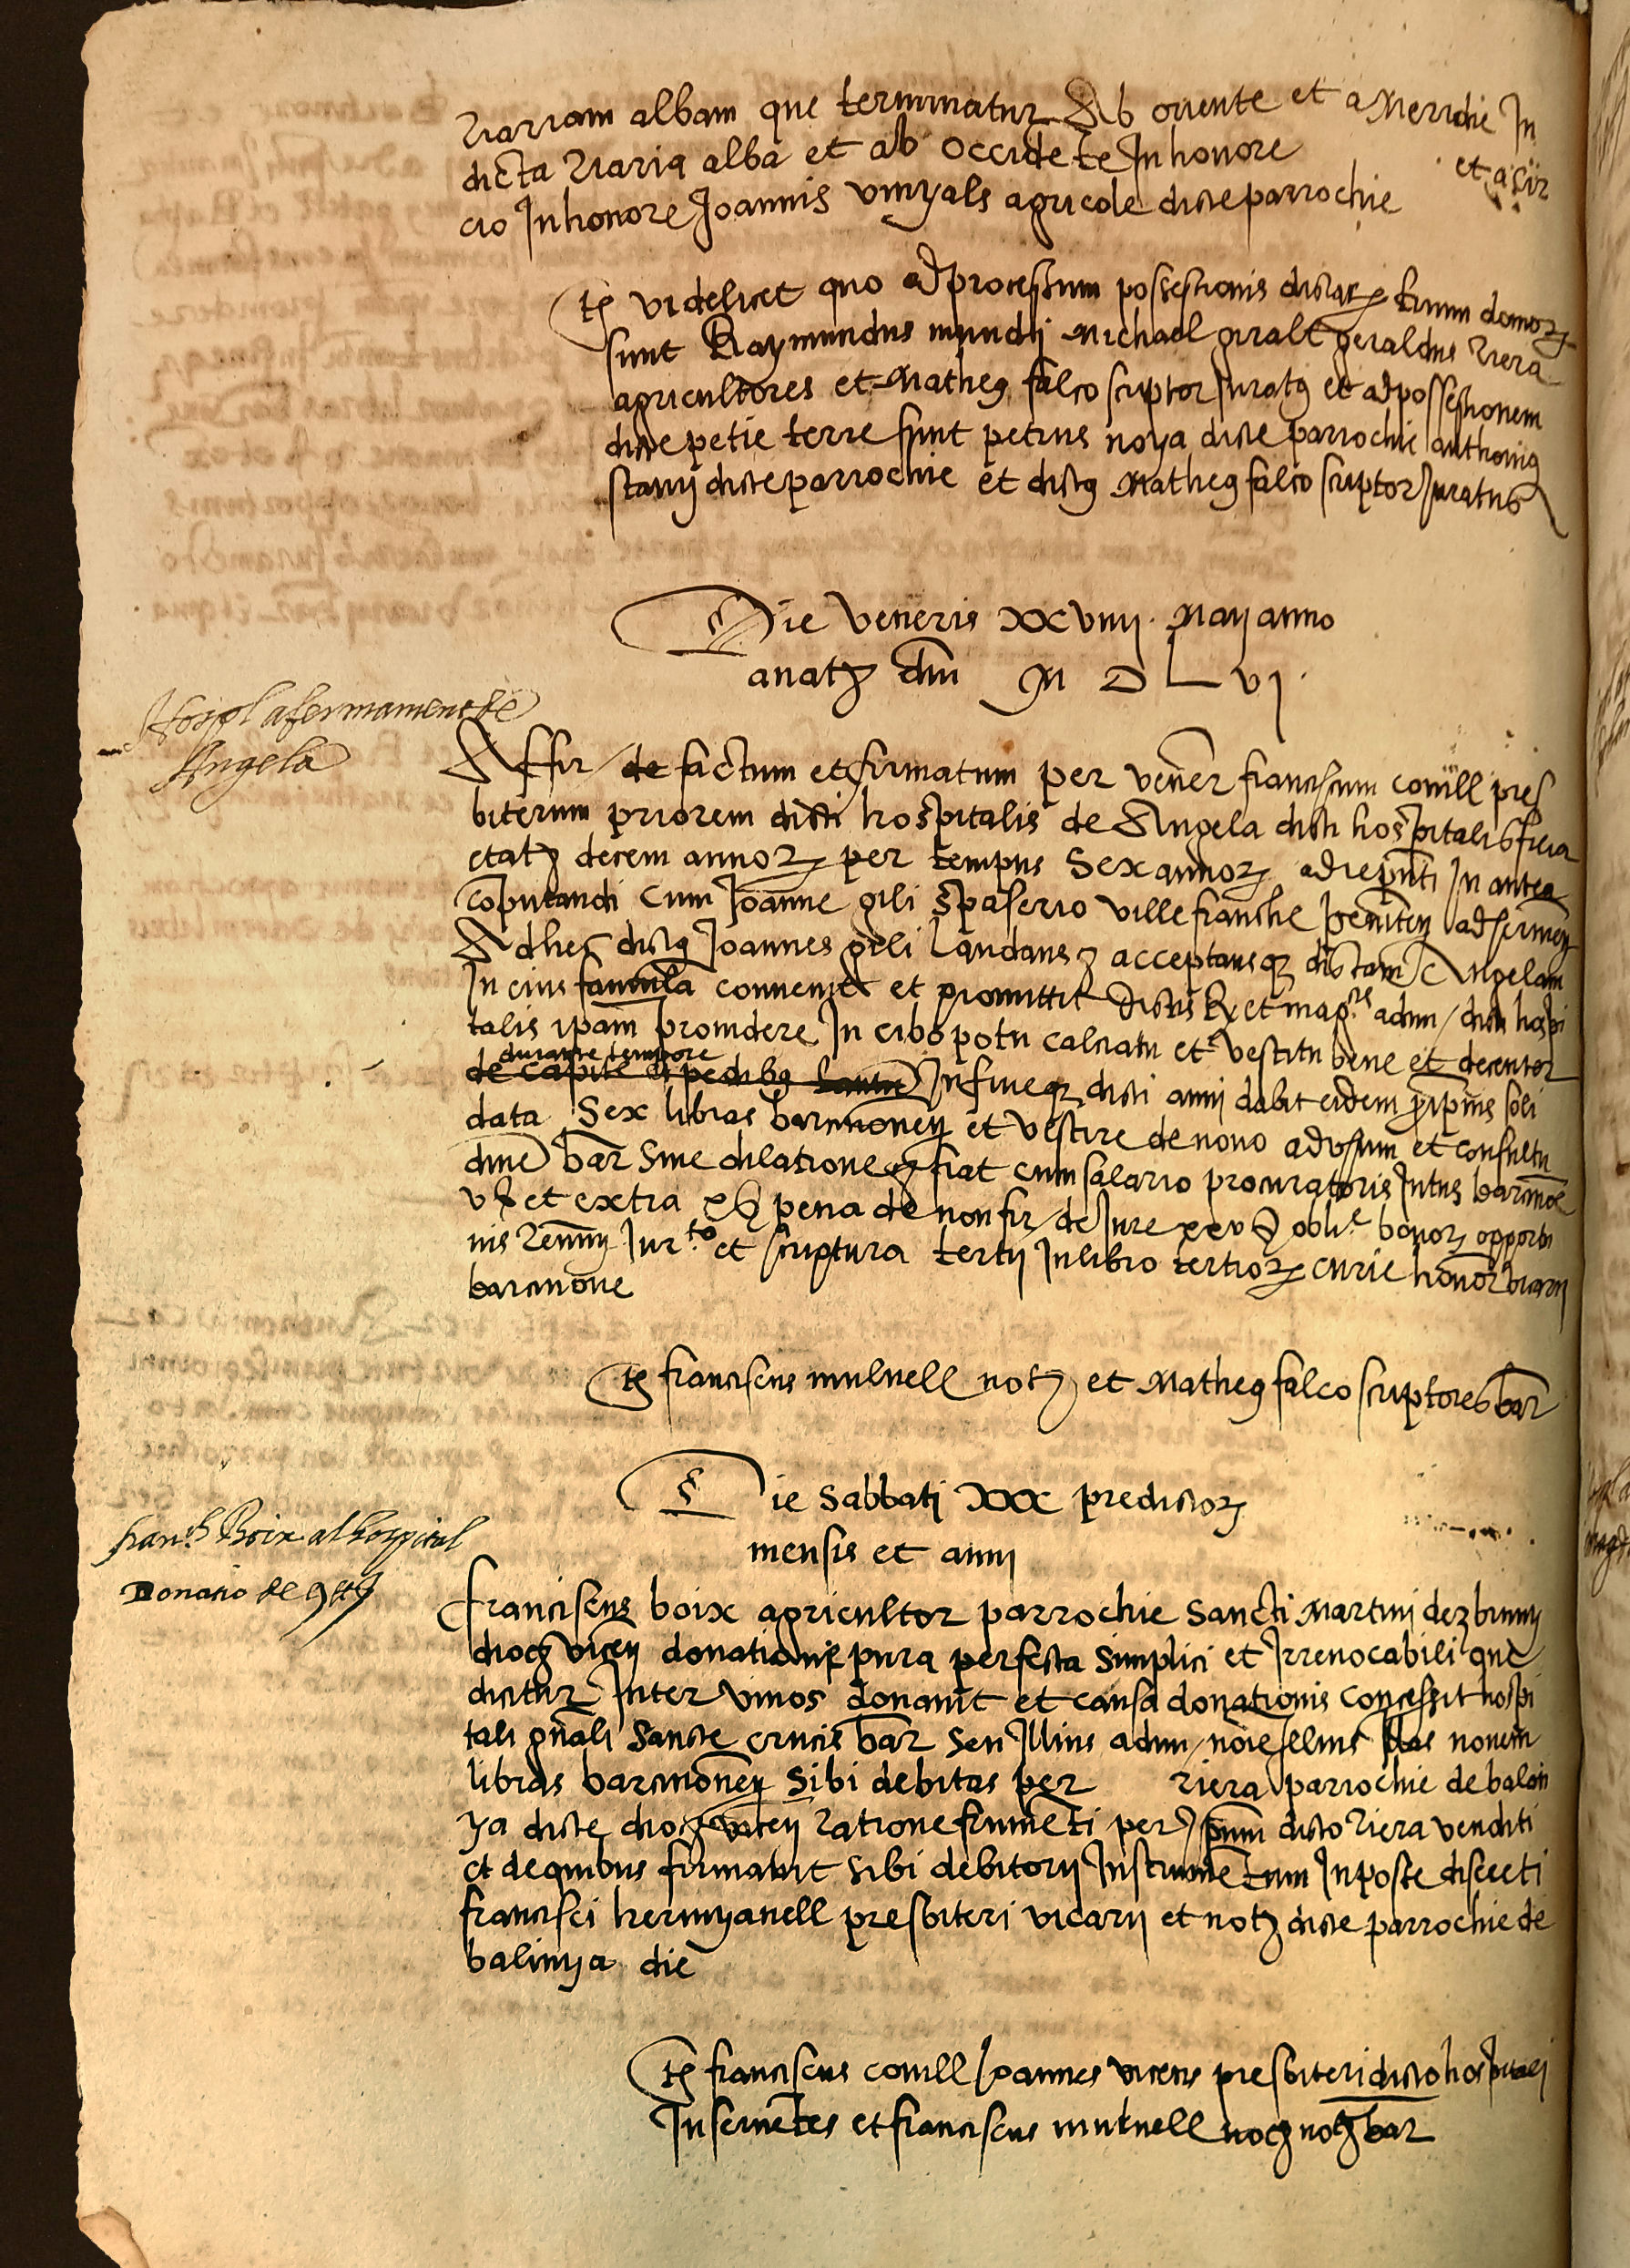 Riariam albam que terminatur Ab oriente et a Meridie In
dicta Riaria alba et ab occidete In honore et a cir
cio In honore Joannis vinyals agricole dicte parrochie
ts videlicet quo ad processum possessionis dictar trium domor
sunt Raymundus mundij Michael giralt geraldus Riera
agricultores et Matheus falco scriptor Juratus et ad possessionem
dicte petie terre sunt petrus noya dicte parrochie anthonius
stanij dicte parrochie et dictus Matheus falco scriptor Juratus
Die veneris xxviiij Maij anno
a natz dni M D L vj
Hospl afermament de
Angela
Affir / de factum et firmatum per vener franciscum conill pres
biterum priorem dicti hospitalis de Angela dicti hospitalis filia
etatz decem annor per tempus Sex annor ad Inantea
coputandi Cum Joanne gili Spaserio villefranche
Adhec dictus Joannes gili laudans acceptansq dictam Angelam
In eius famula convenit et promittit dictis et mag.cis adm / dicti hospi
talis ipam providere In cibo potu calciatu et vestitu bene et decenter
durante tempore
de capite et pedibus Infineq dicti anni dabit eidem soli
data Sex libras barcinonen et vestire de novo ad usum et consuetu
dine bar Sine dilatione fiat cum salario procuratoris Intus barcinone
v s et extra x s pena de non fir / de Jure xxv s obli.e bonor opportu
nis Jur.to et scriptura tertij In libro tertior curie honor vicarij
barcinone
ts franciscus mulnell notz et Matheus falco scriptores bar
Die Sabbati xxx predictor
mensis et anni
Fran.ch Boix al hospital
Donatio de
franciscus boix agricultor parrochie Sancti Martini
dioc vicen donatione pura perfecta Simplici et Irrevocabili que
dicitur Inter vivos donavit et causa donationis concessit hospi
tali gnali Sancte crucis bar Seu Illius adm / noie Illius novem
libras barcinonen Sibi debitas per riera parrochie de balan
ya dicte dioc vicen Ratione frumeti per Ipsum dicto Riera venditi
et de quibus firmavit Sibi debitorij Instrumetum In posse discreti
francisci hermyanell presbiteri vicarij et notz dicte parrochie de
balinya die
ts franciscus conill Joannes vicens presbiteri dicto hospitali
Inservietes et franciscus mulnell notz bar